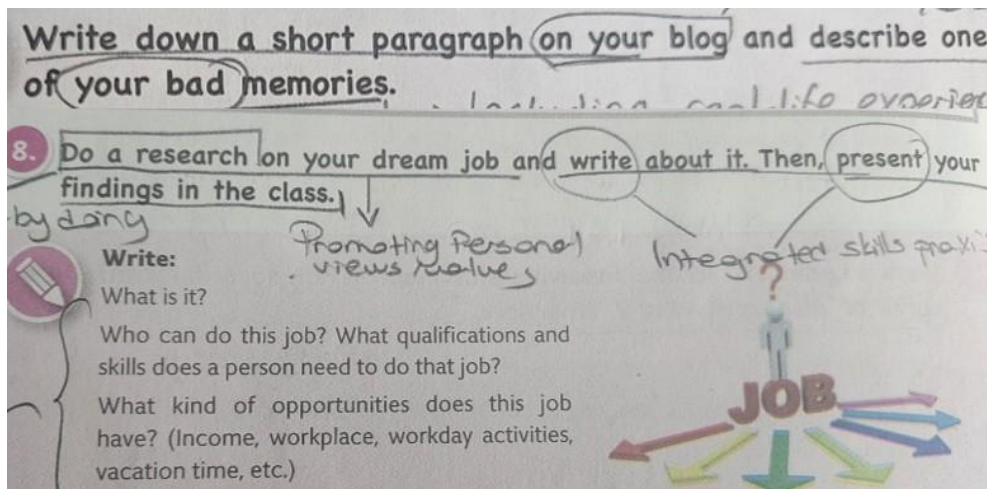 Write down a short paragraph on your blog and describe one
of your bad memories.
Including real life
8. Do a research on your dream job and write about it. Then, present your
findings in the class.
by doing
Promoting Personal
views values
Integrated skills
Write:
What is it?
Who can do this job? What qualifications and
skills does a person need to do that job?
What kind of opportunities does this job
have? (Income, workplace, workday activities,
vacation time, etc.)
?
JOB